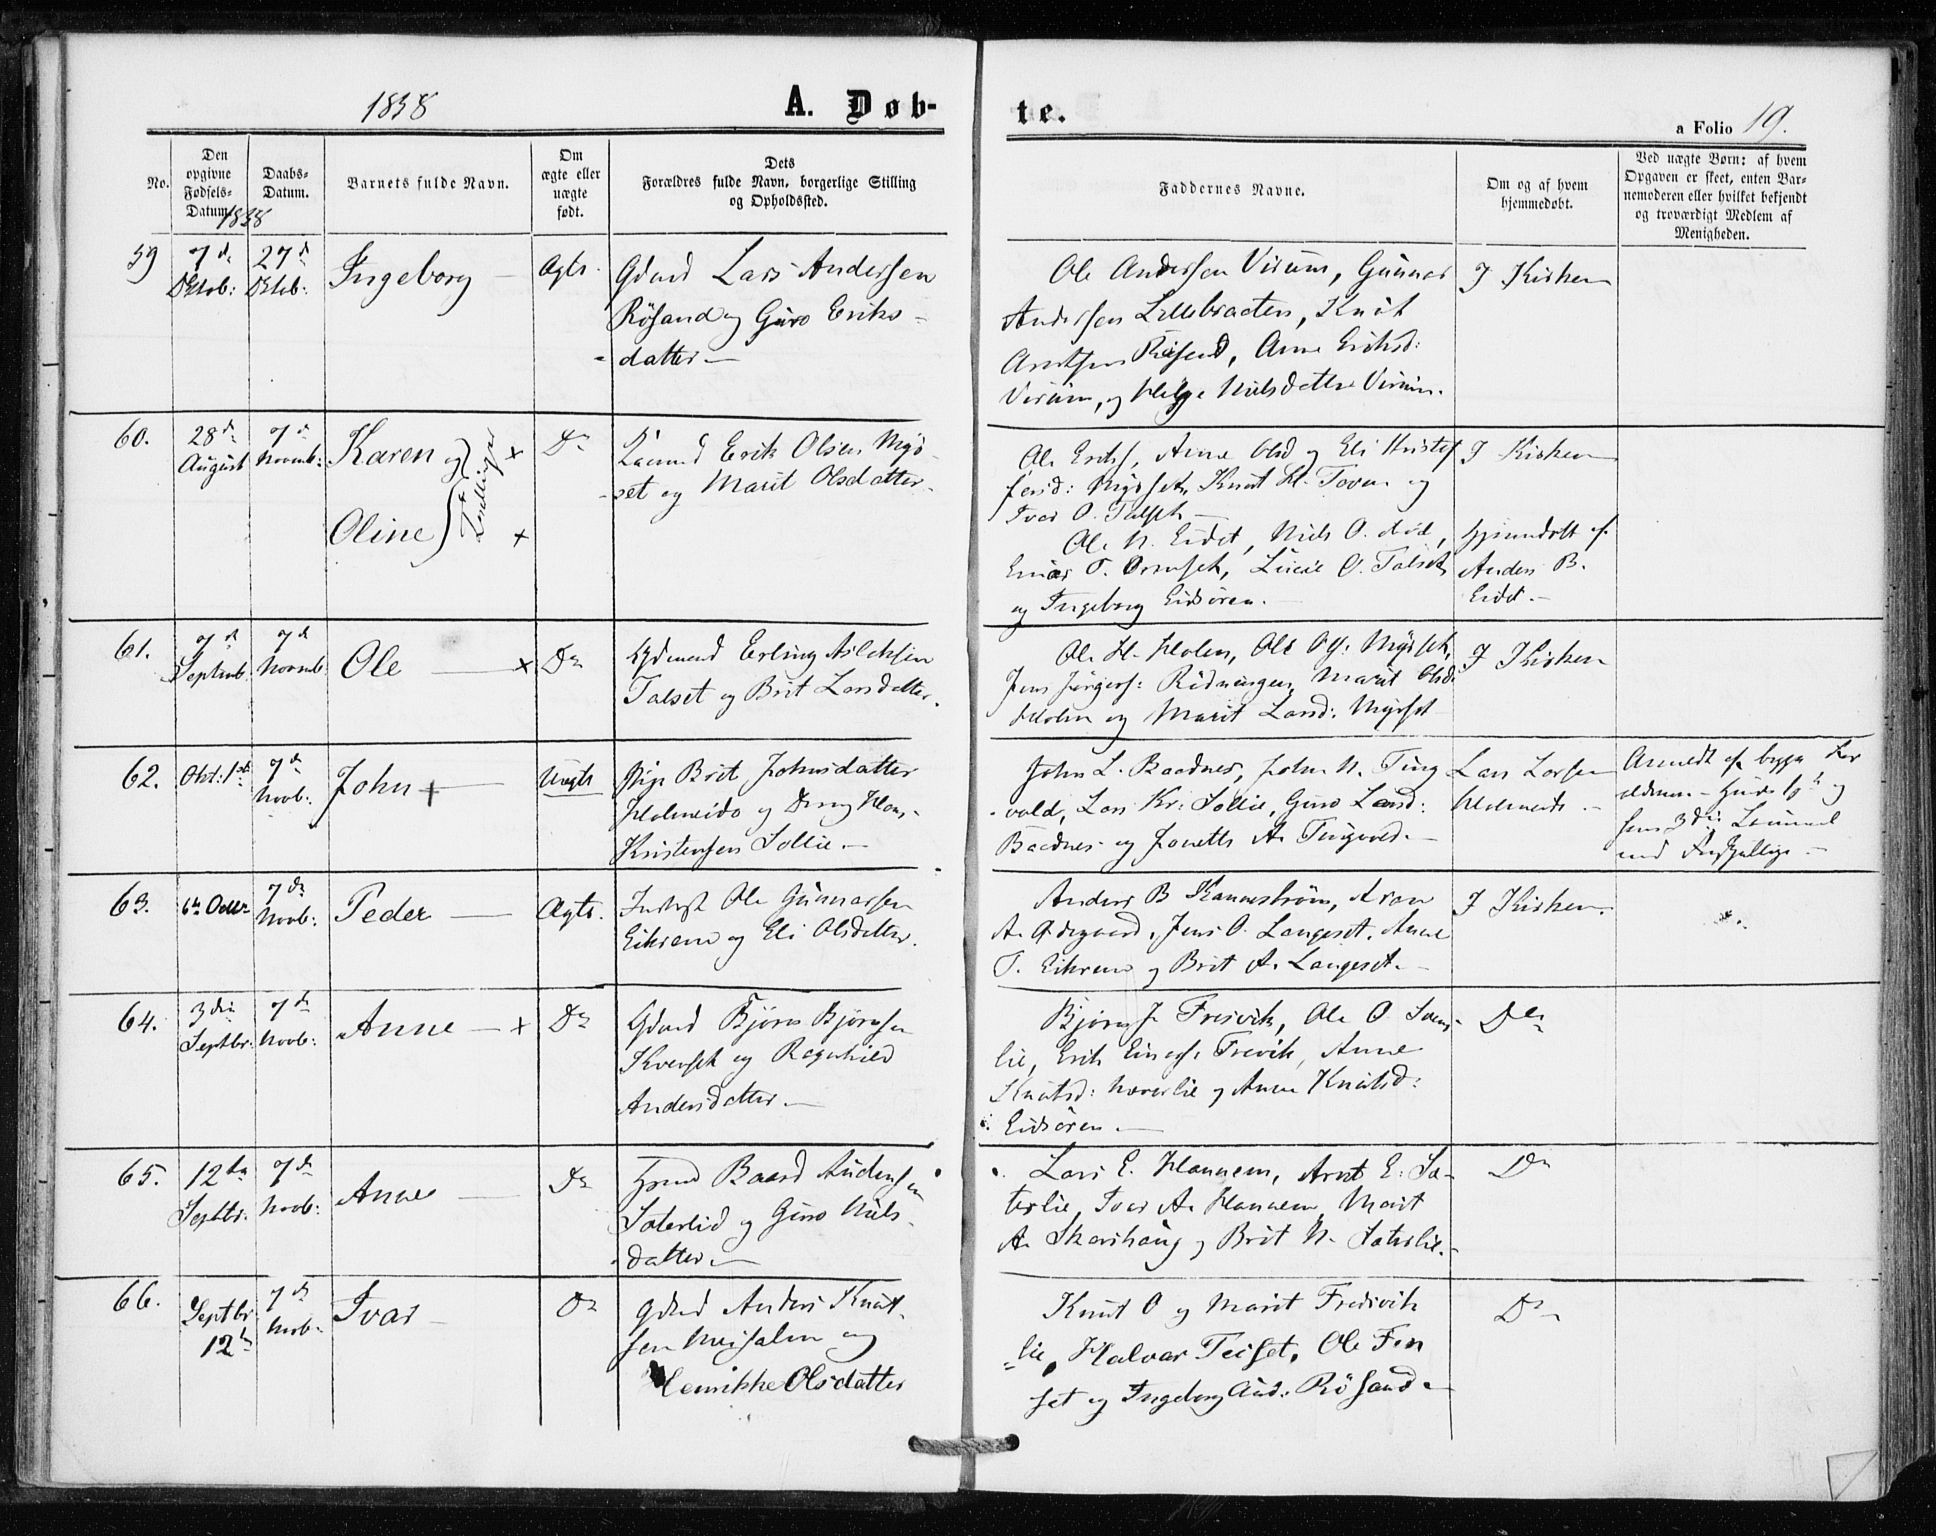 1858
A. Døb-
te.
a Folio 19.
No.
Den opgivne Fødsels-Datum.
Daabs-Datum.
Barnets fulde Navn.
Om ægte eller uægte født.
Dets Forældres fulde Navn, borgerlige Stilling og Opholdssted.
Faddernes Navne.
Om og af hvem hjemmedøbt.
Ved uægte Børn: af hvem Opgaven er skeet, enten Barnemoderen eller hvilket bekjendt og troværdigt Medlem af Menigheden.
1858
59 7de Oktob: 27de Oktob: Ingeborg Ægte
Gdmd Lars Andersen
Røsand og Guro Eriks-
datter
Ole Andersen Virum, Gunnar
Andersen Lillebraaten, Knut
Arntsen Røsand, Anne Eriksd:
Virum, og Helge Nielsdatter Virum.
I Kirken
60. 28de August 7de Novmb: Karen og
Oline
Tvillinger
Do
Erik Olsen Myr-
set og Marit Olsdatter
Ole Eriks, Anne Olsd og Eli Kristof
fersd: Myrset, Knut H. Torve og
Ivar O. Talset
I Kirken
Ole N. Eidet, Niels O.
Einar T. Ormset, Lucie O. Talset
og Ingeborg Eidsøren.
Hjemmdøbt af
Anders B.
Eidet.
61. 7de Septmb. 7de Novmb. Ole Do
Gdmand Erling Aslaksen
Talset og Brit Larsdatter.
Ole H. Holen, Ole Ols. Myrset,
Jens Jørgens: Rødningen, Marit Olsd:
Holen og Marit Larsd: Myrset
I Kirken
62. Okt: 1ste 7de Novb: John Uægte
Pige Brit Johnsdatter
Holmeide og Dreng Hans
Kristensen Sollie
John L. Baadnes, John N. Ting
vold, Lars Kr: Sollie, Guro Larsd:
Baadnes og Jonetta A. Tingvold
Lars Larsen
Holmeide
Anmeldt af begge For
ældrene
63. 6te Octbr 7de Novb: Peder Ægte
Indst Ole Gunnarsen
Eikrem og Eli Olsdatter.
Anders B Kannestrøm, Aron
A. Ødegaard, Jens O. Langeset, Anne
T. Eikrem og Brit A. Langeset.
I Kirken.
64. 3die Septbr: 7de Novb: Anne Do
Gdmd Bjørn Bjørnsen
Kverset og Ragnhild
Andersdatter
Bjørn J. Fresvik, Ole O. Svens-
lie, Erik Einars. Frevik, Anne
Knutsd: Nøverlie og Anne Knutsd:
Eidsøren
Do
65. 12te Septbr. 7de Novb: Anne Do
Baard Audensen
Saterlid og Guro Niels-
datter
Lars E. Hannem, Arnt E: Sa-
terlie, Ivar A. Hannem, Marit
A. Skarshaug og Brit N. Saterlie.
Do
66. Septbr 12te 7de Novb. Ivar Do
Gdmd Anders Knut-
sen Meisalen og
Henrikke Olsdatter
Knut O og Marit Fredsvik
lie, Halvar Teiset, Ole Fen
set og Ingeborg And: Røsand
Do